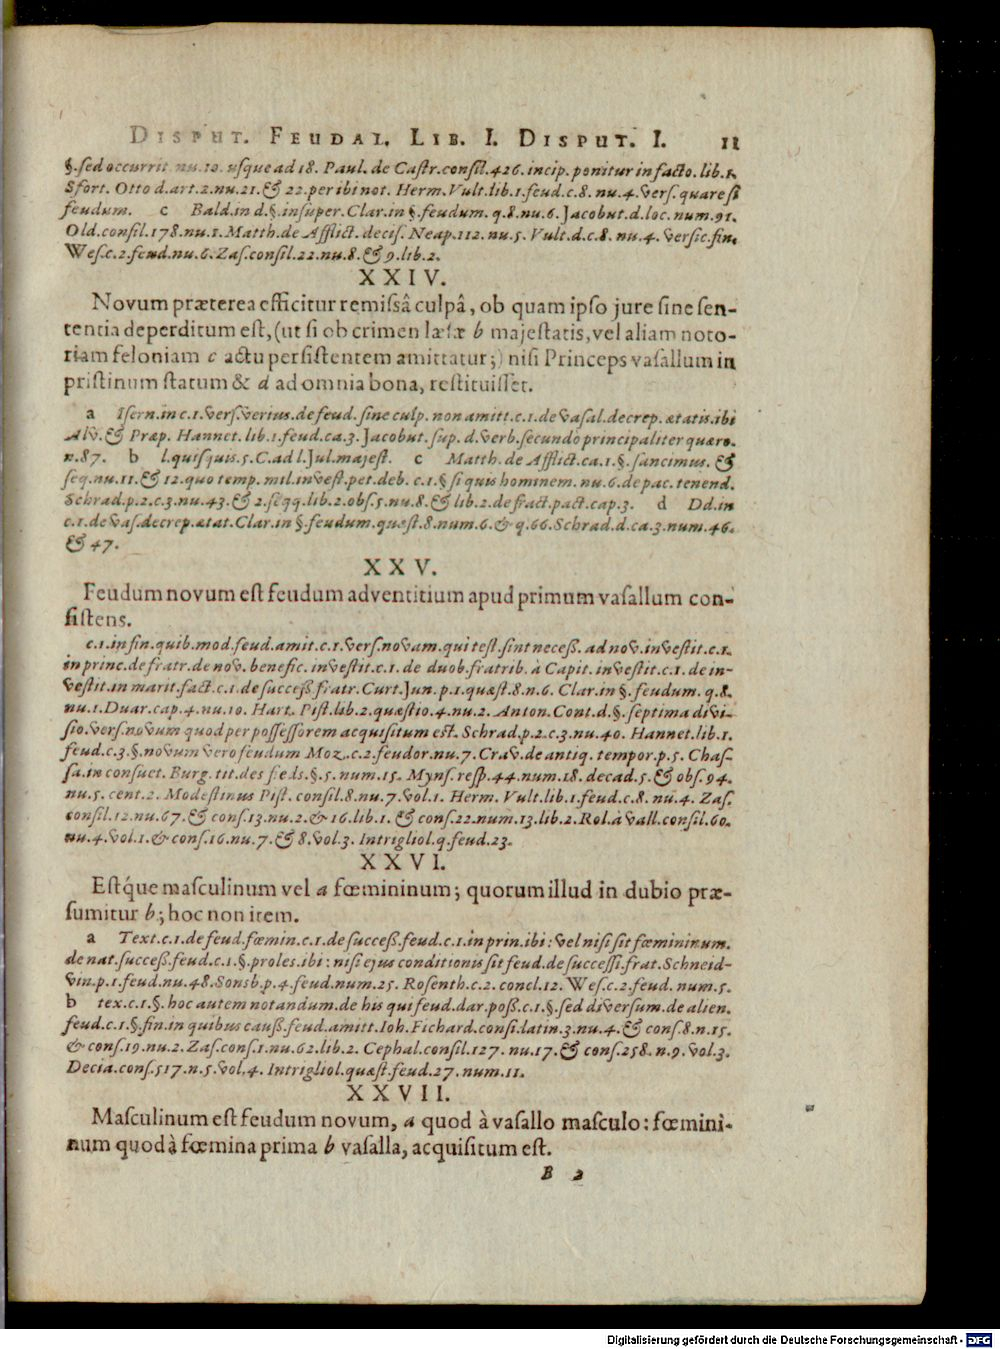 DISPUT. FEUDAL. LIB. I. DISPUT. I. 11
§. sed occurrit nu. 10. usque ad 18. Paul. de Castr. consil. 426. incip. ponitur in facto. lib. 1.
Sfort. Otto d. art. 2. nu. 21. & 22. per ibi not. Herm. Vult. lib. 1. feud. c. 8. nu. 4. vers. quare si
feudum. c Bald. in d. §. insuper. Clar. in §. feudum. q. 8. nu. 6. Jacobut. d. loc. num. 91.
Old. consil. 178. nu. 1. Matth. de Afflict. decis. Neap. 112. nu. 5. Vult. d. c. 8. nu. 4. versic. fin.
Wes. c. 2. feud. nu. 6. Zas. consil. 22. nu. 8. & 9. lib. 2.
XXIV.
Novum præterea efficitur remissâ culpâ, ob quam ipso jure sine sen-
tentia deperditum est, (ut si ob crimen læsæ b majestatis, vel aliam noto-
riam feloniam c actu persistentem amittatur;) nisi Princeps vasallum in
pristinum statum & d ad omnia bona, restituisset.
a Isern. in c. 1. vers. verius. de feud. sine culp. non amitt. c. 1. de vasal. decrep. ætatis. ibi
Alv. & Præp. Hannet. lib. 1. feud. ca. 3. Jacobut. sup. d. verb. secundò principaliter quæro.
n. 87. b l. quisquis. 5. C. ad l. Jul. majest. c Matth. de Afflict. ca. 1. §. sancimus. &
seq. nu. 11. & 12. quo temp. mil. invest. pet. deb. c. 1. § si quis hominem. nu. 6. de pac. tenend.
Schrad. p. 2. c. 3. nu. 43. & 2. seqq. lib. 2. obs. 5. nu. 8. & lib. 2. de fract. pact. cap. 3. d Dd. in
c. 1. de vas. decrep. ætat. Clar. in §. feudum. quæst. 8. num. 6. & q. 66. Schrad. d. ca. 3. num. 46.
& 47.
XXV.
Feudum novum est feudum adventitium apud primum vasallum con-
sistens.
c. 1. in fin. quib. mod. feud. amit. c. 1. vers. novam. qui test. sint necess. ad nov. investit. c. 1.
in princ. de fratr. de nov. benefic. investit. c. 1. de duob. fratrib. à Capit. investit. c. 1. de in-
vestit. in marit. fact. c. 1. de success. fratr. Curt. Jun. p. 1. quæst. 8. n. 6. Clar. in §. feudum. q. 8.
nu. 1. Duar. cap. 4. nu. 10. Hart. Pist. lib. 2. quæstio. 4. nu. 2. Anton. Cont. d. §. septima divi-
sio. vers. novum quod per possessorem acquisitum est. Schrad. p. 2. c. 3. nu. 40. Hannet. lib. 1.
feud. c. 3. §. novum vero feudum Moz. c. 2. feudor. nu. 7. Crav. de antiq. tempor. p. 5. Chas-
sa. in consuet. Burg. tit. des fieds. §. 5. num. 15. Myns. resp. 44. num. 18. decad. 5. & obs. 94.
nu. 5. cent. 2. Modestinus Pist. consil. 8. nu. 7. vol. 1. Herm. Vult. lib. 1. feud. c. 8. nu. 4. Zas.
consil. 12. nu. 67. & cons. 13. nu. 2. & 16. lib. 1. & cons. 22. num. 13. lib. 2. Rol. à Vall. consil. 60.
nu. 4. vol. 1. & cons. 16. nu. 7. & 8. vol. 3. Intrigliol. q. feud. 23.
XXVI.
Estq́ue masculinum vel a fœmininum; quorum illud in dubio præ-
sumitur b; hoc non item.
a Text. c. 1. de feud. fœmin. c. 1. de success. feud. c. 1. in prin. ibi: vel nisi sit fœmininum.
de nat. success. feud. c. 1. §. proles. ibi: nisi ejus conditionis sit feud. de successi. frat. Schneid-
vin. p. 1. feud. nu. 48. Sonsb. p. 4. feud. num. 25. Rosenth. c. 2. concl. 12. Wes. c. 2. feud. num. 5.
b tex. c. 1. §. hoc autem notandum. de his qui feud. dar. poss. c. 1. §. sed diversum. de alien.
feud. c. 1. §. fin. in quibus causs. feud. amitt. Ioh. Fichard. consi. latin. 3. nu. 4. & cons. 8. n. 15.
& cons. 19. nu. 2. Zas. cons. 1. nu. 62. lib. 2. Cephal. consil. 127. nu. 17. & cons. 258. n. 9. vol. 3.
Decia. cons. 517. n. 5. vol. 4. Intrigliol. quæst. feud. 27. num. 11.
XXVII.
Masculinum est feudum novum, a quod à vasallo masculo: fœmini-
num quod à fœmina prima b vasalla, acquisitum est.
B 2
Digitalisierung gefördert durch die Deutsche Forschungsgemeinschaft - DFG